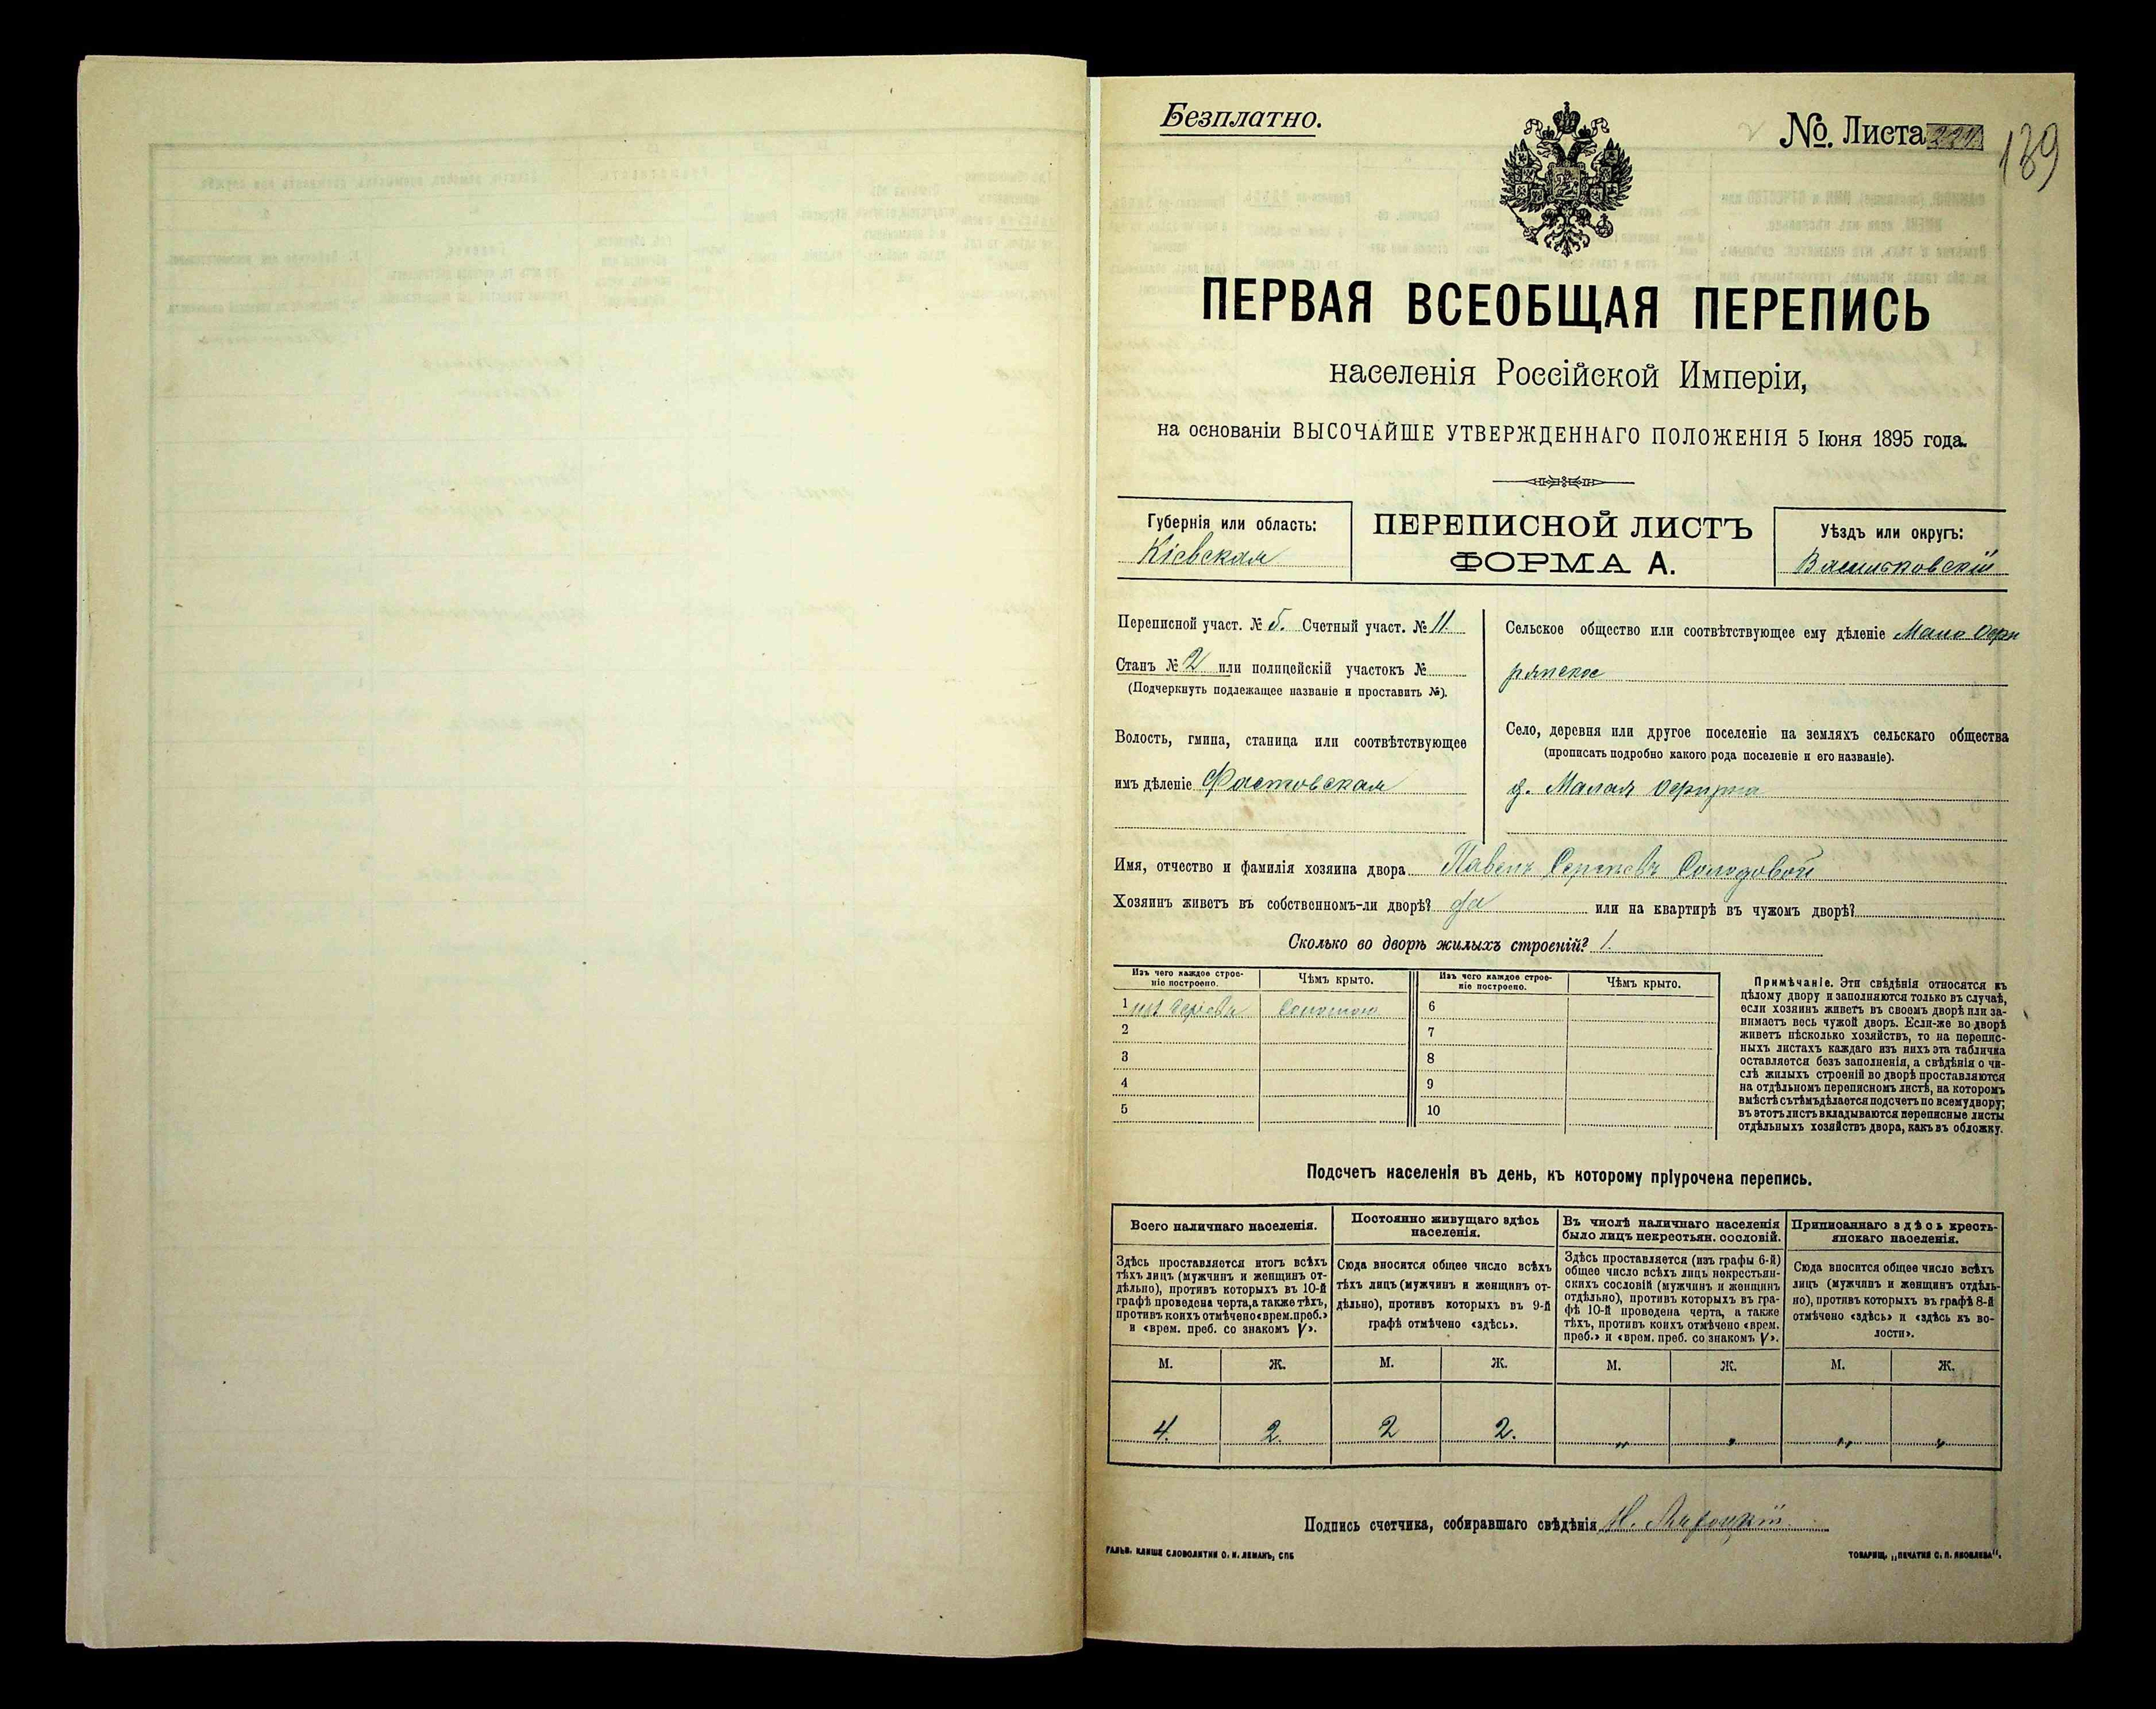 Безплатно.
№. Листа 139
ПЕРВАЯ ВСЕОБЩАЯ ПЕРЕПИСЬ
населенія Россійской Имперіи,
на основаніи ВЫСОЧАЙШЕ УТВЕРЖДЕННАГО ПОЛОЖЕНІЯ 5 Іюня 1895 года.
Губернія или область:
Кіевская
ПЕРЕПИСНОЙ ЛИСТЪ
ФОРМА А.
Уѣздъ или округъ:
Васильковскій
Переписной участ. № 5. Счетный участ. № 11.
Станъ № 2 или полицейскій участокъ №
(Подчеркнуть подлежащее названіе и проставить №).
Волость, гмина, станица или соотвѣтствующее
имъ дѣленіе Фастовская
Сельское общество или соотвѣтствующее ему дѣленіе Мало
Село, деревня или другое поселеніе на земляхъ сельскаго общества
(прописать подробно какого рода поселеніе и его названіе).
д. Малая
Имя, отчество и фамилія хозяина двора Павелъ Сергѣевъ Солодовой
Хозяинъ живетъ въ собственномъ-ли дворѣ? да или на квартирѣ въ чужомъ дворѣ?
Сколько во дворѣ жилыхъ строеній? 1.
Изъ чего каждое строе-
ніе построено.
Чѣмъ крыто.
Изъ чего каждое строе-
ніе построено.
Чѣмъ крыто.
1 изъ дерева Соломою 6
2 7
3 8
4 9
5 10
Примѣчаніе. Эти свѣдѣнія относятся къ
цѣлому двору и заполняются только въ случаѣ,
если хозяинъ живетъ въ своемъ дворѣ или за-
нимаетъ весь чужой дворъ. Если-же во дворѣ
живетъ нѣсколько хозяйствъ, то на перепис-
ныхъ листахъ каждаго изъ нихъ эта табличка
оставляется безъ заполненія, а свѣдѣнія о чи-
слѣ жилыхъ строеній во дворѣ проставляются
на отдѣльномъ переписномъ листѣ, на которомъ
вмѣстѣ съ тѣмъ дѣлается подсчетъ по всему двору;
въ этотъ листъ вкладываются переписные листы
отдѣльныхъ хозяйствъ двора, какъ въ обложку.
Подсчетъ населенія въ день, къ которому пріурочена перепись.
Всего наличнаго населенія.
Здѣсь проставляется итогъ всѣхъ
тѣхъ лицъ (мужчинъ и женщинъ от-
дѣльно), противъ которыхъ въ 10-й
графѣ проведена черта, а также тѣхъ,
противъ коихъ отмѣчено «врем. преб.»
и «врем. преб. со знакомъ V».
Постоянно живущаго здѣсь
населенія.
Сюда вносится общее число всѣхъ
тѣхъ лицъ (мужчинъ и женщинъ от-
дѣльно), противъ которыхъ въ 9-й
графѣ отмѣчено «здѣсь».
Въ числѣ наличнаго населенія
было лицъ некрестьян. сословій.
Здѣсь проставляется (изъ графы 6-й)
общее число всѣхъ лицъ некрестьян-
скихъ сословій (мужчинъ и женщинъ
отдѣльно), противъ которыхъ въ гра-
фѣ 10-й проведена черта, а также
тѣхъ, противъ коихъ отмѣчено «врем.
преб.» и «врем. преб. со знакомъ V».
Приписаннаго здѣсь кресть-
янскаго населенія.
Сюда вносится общее число всѣхъ
лицъ (мужчинъ и женщинъ отдѣль-
но), противъ которыхъ въ графѣ 8-й
отмѣчено «здѣсь» и «здѣсь къ во-
лости».
М. Ж. М. Ж. М. Ж. М. Ж.
4. 2. 2 2. „ „ „ „
Подпись счетчика, собиравшаго свѣдѣнія
ГАЛЬВ. КЛИШЕ СЛОВОЛИТНИ О. И. ЛЕМАНЪ, СПБ
ТОВАРИЩ. „ПЕЧАТНЯ С. П. ЯКОВЛЕВА".